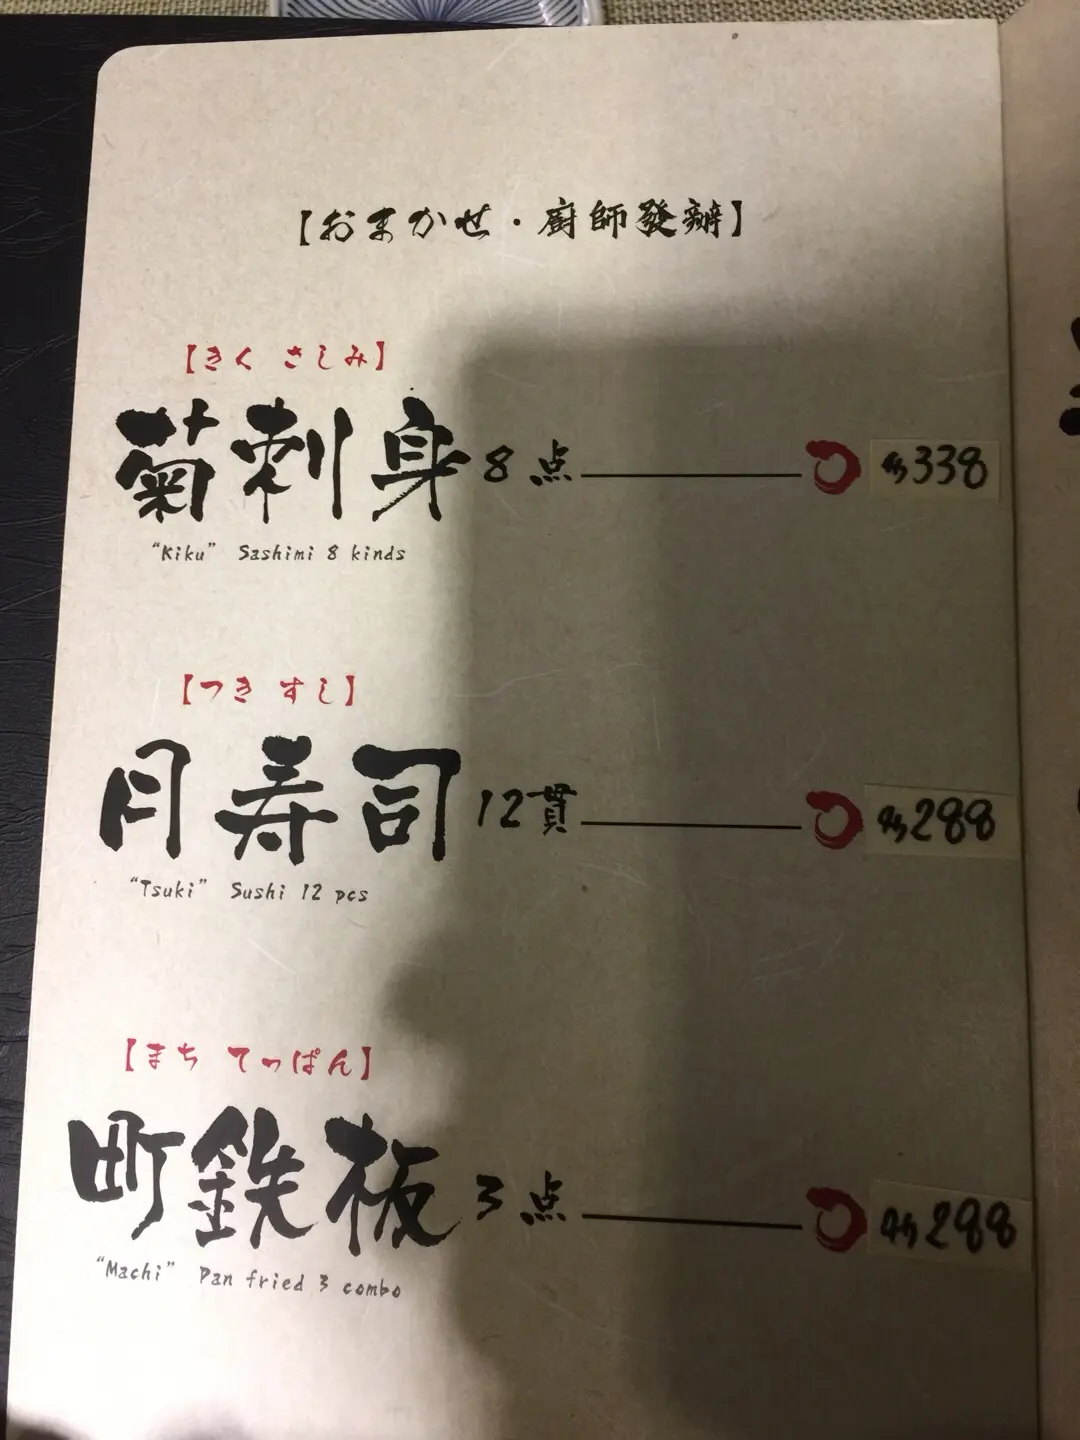 【おまかせ・廚師發辦】
【きく さしみ】
菊刺身 8 点 338
"Kiku" Sashimi 8 kinds
【つき すし】
月寿司 12貫 288
"Tsuki" Sushi 12 pcs
【まち てっぱん】
町鉄板 3 点 288
"Machi" Pan fried 3 combo